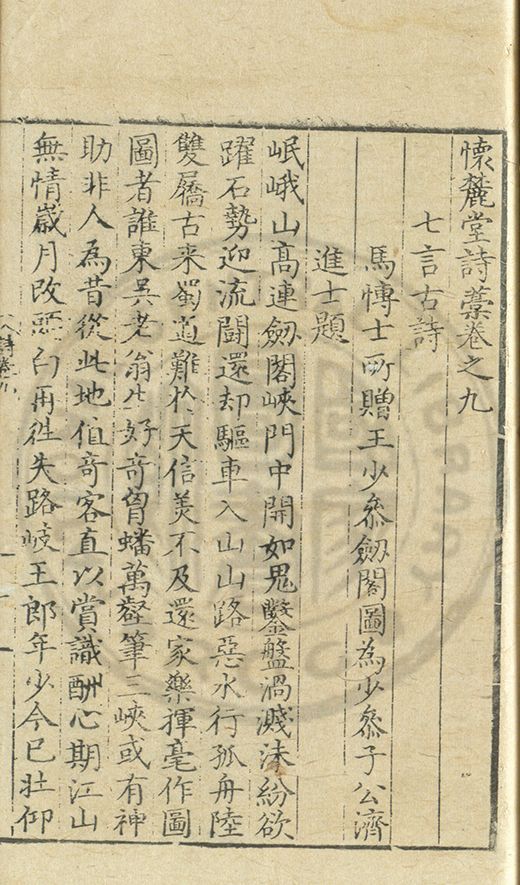 懷麓堂詩藁卷之九
七言古詩
馬愽士所贈王少叅劔閣圖為少叅子公濟
進士題
岷峨山髙連劔閣峽門中開如鬼鑿盤渦濺沫紛欲
躍石勢迎流鬪還却驅車入山山路惡水行孤舟陸
雙屩古来蜀道難於天信羙不及還家樂揮毫作圖
圖者誰東吳老翁生好竒胷蟠萬壑筆三峽或有神
助非人為昔從此地值竒客直以賞識酬心期江山
無情歲月改頭白再徃失路岐王郎年少今已壯仰